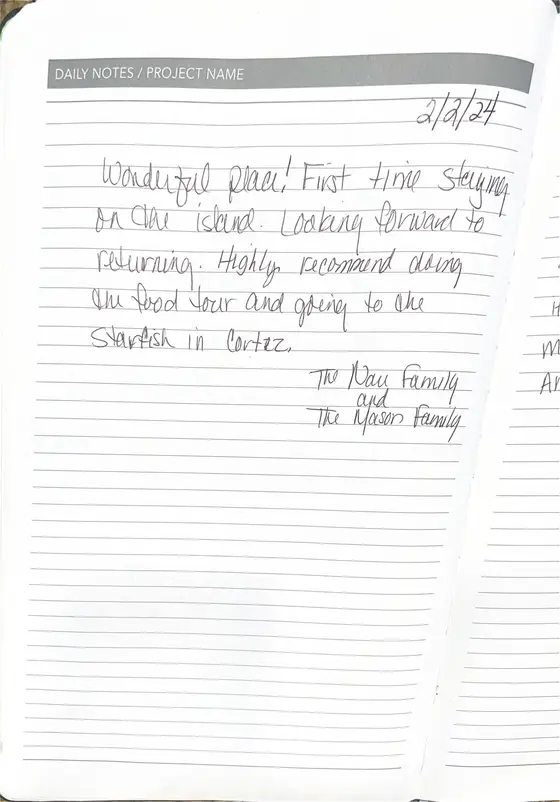 DAILY NOTES / PROJECT NAME
2/2/24
Wonderful place! First time staying
on the island. Looking forward to
returning. Highly recommend doing
the food tour and going to the
Starfish in Cortez.
The Nau Family
and
The Mason Family
H
M
Ar